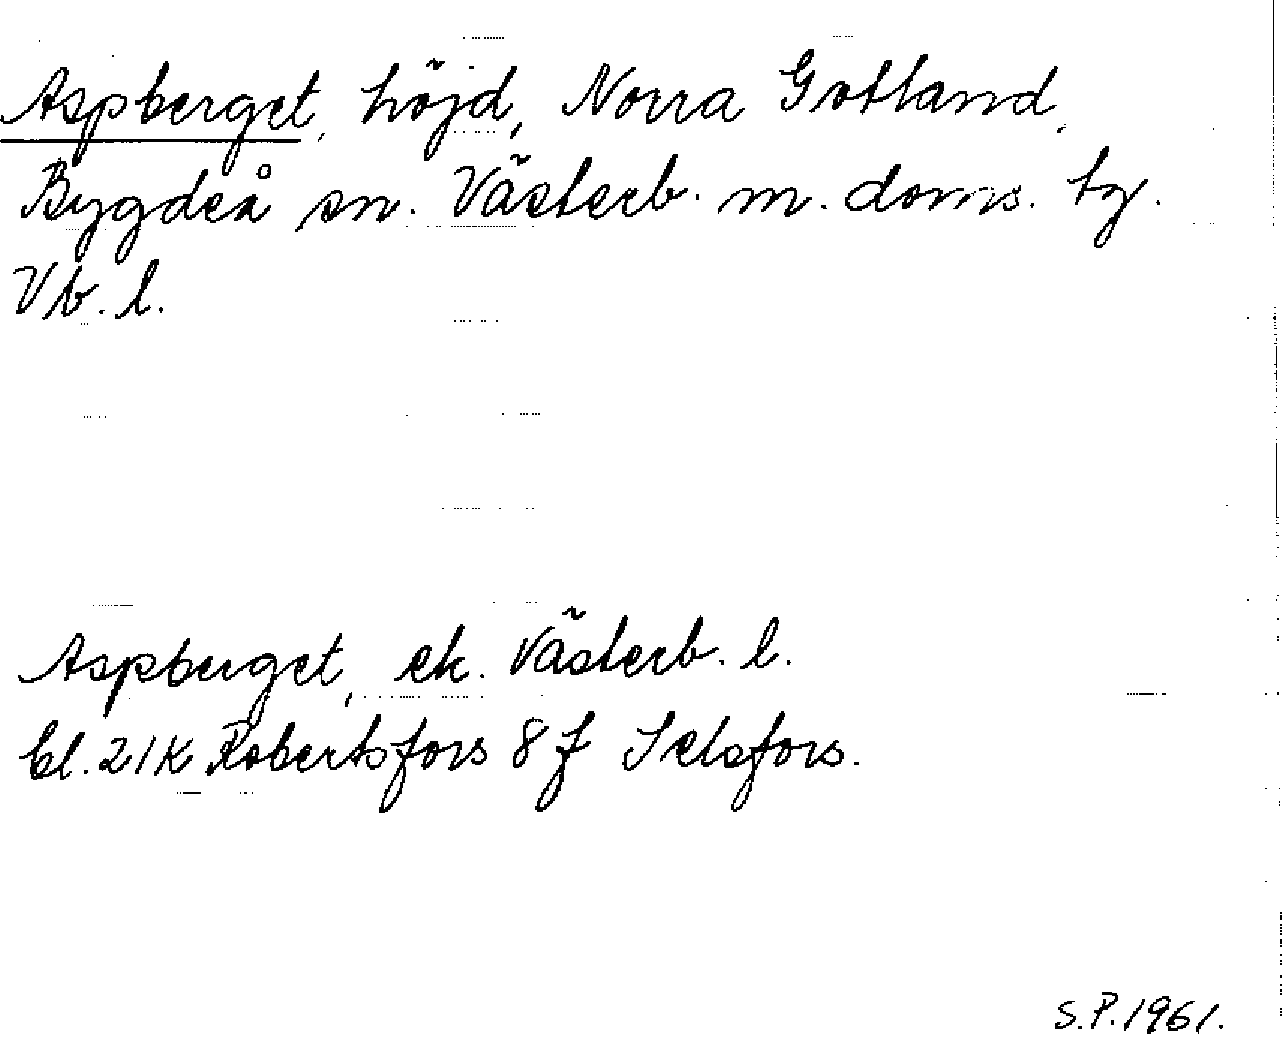 Aspberget, höjd, Norra Gotland,
Bygdeå sn. Västerb. m. doms. tg.
Vb. l.
Aspberget, ek. Västerb. l.
bl. 21K Robertsfors 8f Selsfors.
S.P. 1961.